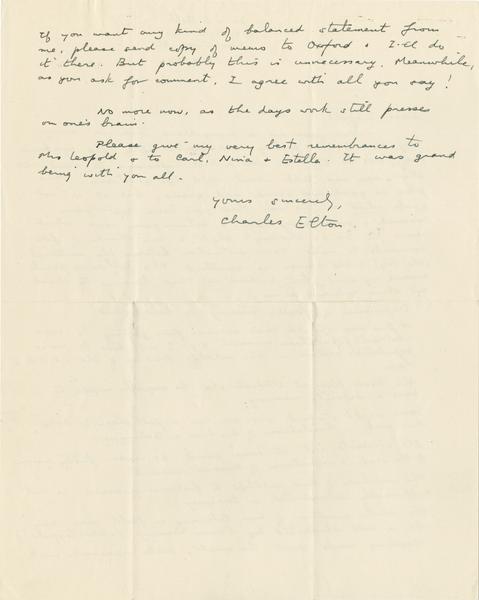 If you want any kind of balanced statement from
me, please send copy of memo to Oxford & I'll do
it there. But probably this is unnecessary. Meanwhile,
as you ask for comment, I agree with all you say!
No more now, as the days work still presses
on one's brain.
Please give my very best remembrances to
Mrs Leopold & to Carl, Nina & Estella. It was grand
being with you all.
Yours sincerely,
Charles Elton.